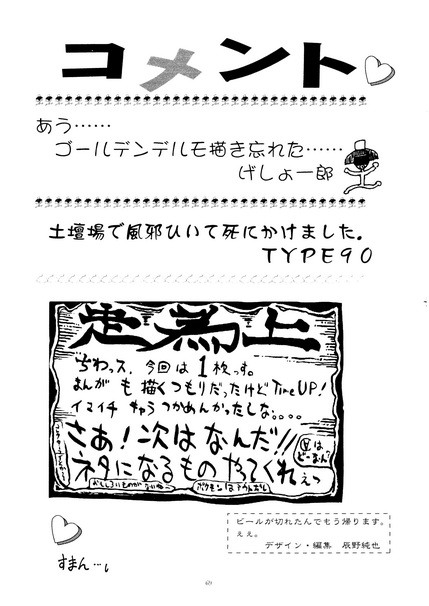 コメント
あう……
ゴールデンデルモ描き忘れた……
げしょ一郎
土壇場で風邪ひいて死にかけました。
TYPE90
走為上
ちわっス、今回は1枚っす。
まんが も 描くつもりだったけど Time UP!
イマイチ キャラ つかめんかったしな。。。
さあ!次はなんだ!!
ネタになるもの やってくれぇっ
ビールが切れたんでもう帰ります。
ええ。
デザイン・編集 辰野純也
すまん…。